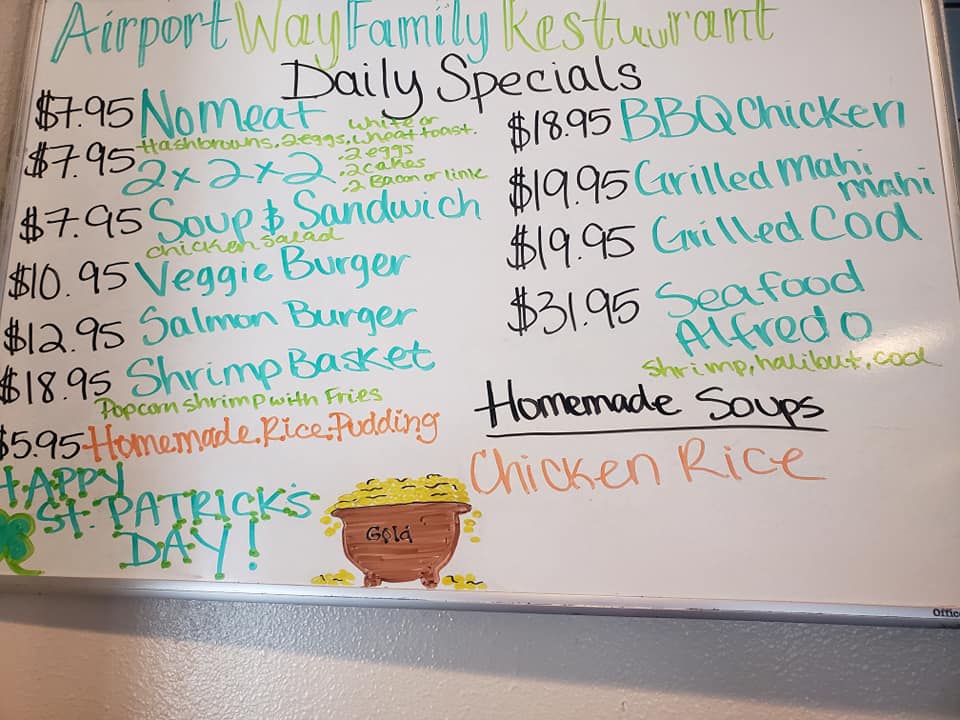 Airport Way Family Restuurant
Daily Specials
$7.95 No Meat
Hashbrowns, 2 eggs, white or wheat toast.
$7.95 2x2x2
. 2 eggs
. 2 cakes
. 2 Bacon or link
$7.95 Soup & Sandwich
chicken salad
$10.95 Veggie Burger
$12.95 Salmon Burger
$18.95 Shrimp Basket
Popcorn shrimp with Fries
$5.95 Homemade Rice Pudding
HAPPY
St. PATRICK'S
DAY!
Gold
$18.95 BBQ Chicken
$19.95 Grilled Mahi
mahi
$19.95 Grilled Cod
$31.95 Seafood
Alfredo
shrimp, halibut, cod
Homemade Soups
Chicken Rice